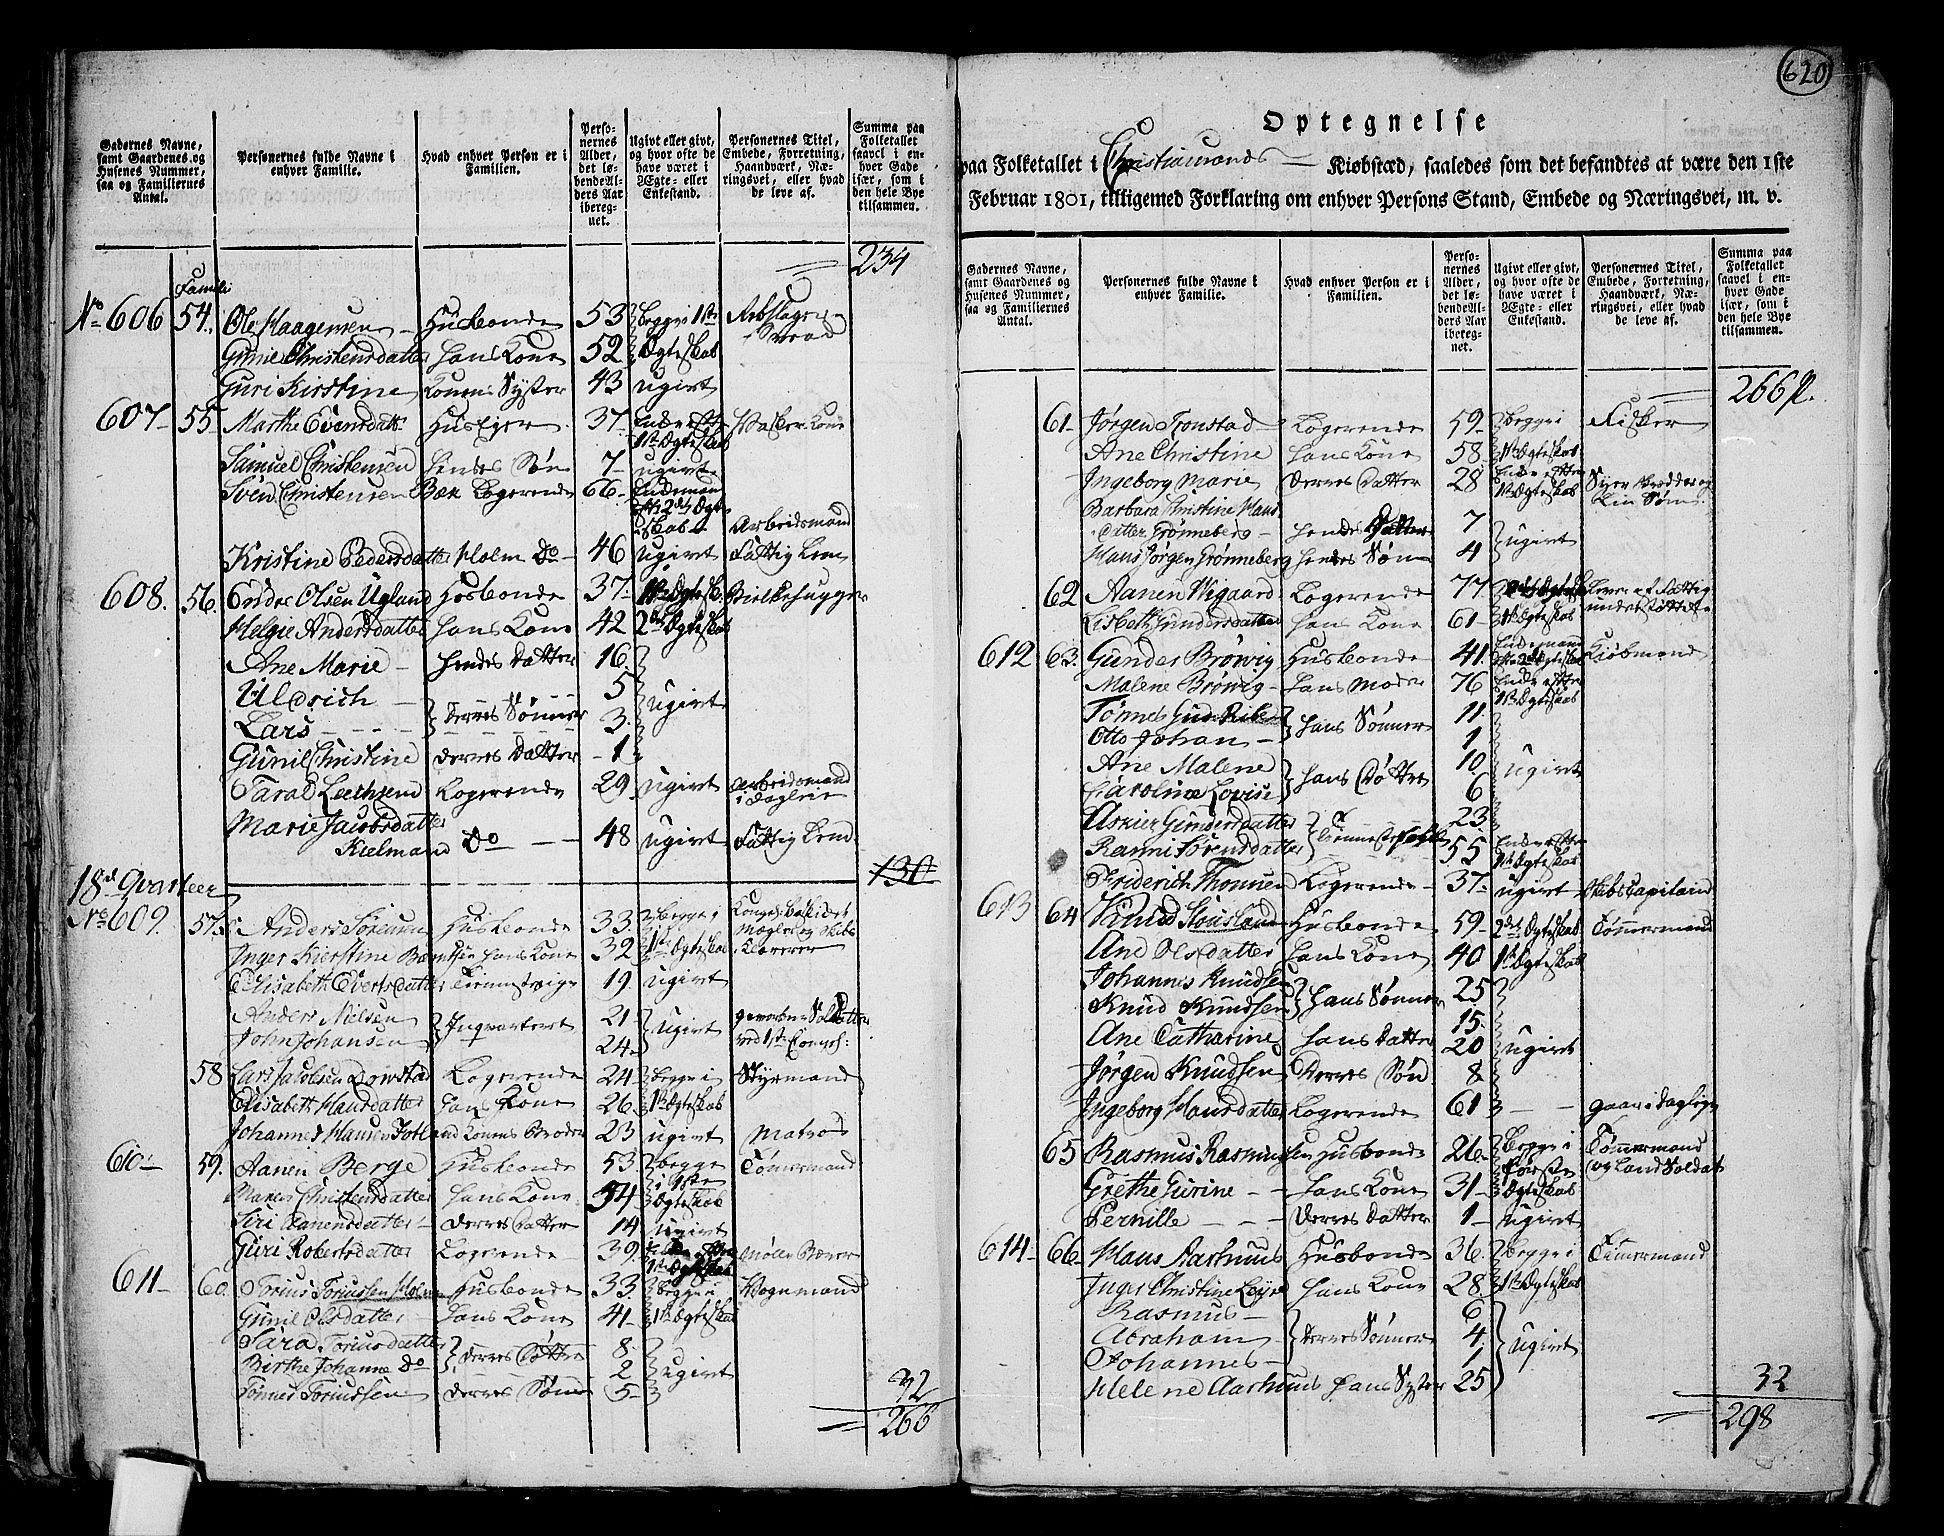 Gadernes Navne, samt Gaardenes og Husenes Nummer, saa og Familiernes Antal.
Personernes fulde Navne i enhver Familie.
Hvad enhver Person er i Familien.
Personernes Alder, det løbende Alders Aar iberegnet.
Ugivt eller givt, og hvor ofte de have været i Ægte- eller Enkestand.
Personernes Titel, Embede, Forretning, Haandværk, Næringsvei, eller hvad de leve af.
Summa paa Folketallet saavel i enhver Gade især, som i den hele Bye tilsammen.
234
Familie
No 606 54. Ole Haagensen Husbonde 53 begge i 1ste
Gunie Christensdatter hans Kone 52 Ægteskab
Guri Kirstine Konens Syster 43 ugivt
607 55 Marthe Evensdatt. HusEger 37 Enke efter 1st Ægteskab Vasker Kone
Samuel Christensen hendes Søn 7 ugivt
Svend Christensen Bæk Logerende 66 Enkemand 2d Ægteskab Arbeidsmand
Kristine Pedersdatter Holm Do 46 ugivt Fattig Lem
608. 56. Endre Olsen Ugland Hosbonde 37 1st Ægteskab Bielkehugger
Helgie Andersdatter hans Kone 42 2det Ægteskab
Ane Marie hendes Datter 16
Uldrich 5 ugivt
Lars deres Sønner 3
Gunil Christine deres Datter 1
Tarald Leethsend Logerende 29 ugivt Arbeidsmand
Marie Jacobsdatter
Kielmand Do 48 ugivt Fattig Lend
18d Qvarteer 130
No 609. 57. Anders Sörensen Husbonde 33 begge i Mægler og Skibs Klarerer
Inger Kierstine Berntsen hans Kone 32 1st Ægteskab
Elisabeth Evertsdatter Tieneste Pige 19 ugivt
Anders Nielsen 21 ugivt gevorbne Soldatter
John Johansen Inqvarteret 24 ved 1ste Comp:
58 Lars Jacobsen Lovstad Logerende 24 begge i Styrmand
Elisabeth Hansdatter hans Kone 26 1st Ægteskab
Johannes Hansen Konens Broder 23 ugivt Matros
610 59. Aanen Berge Husbonde 53 begge i 1ste Tømermand
Maren Christensdatter hans Kone 54 Ægteskab
Siri Aanensdatter deres Datter 14 ugivt
Guri Robertsdatter Logerende 39
611 60. Torius Toriussen Holm Husbonde 33 begge i Vognmand
Gunil Olsdatter hans Kone 41 1st Ægteskab
Sara Toriusdatter 8
Birthe Johanne Do deres Døttre 2 ugivt
Tønnes Toriussen deres Søn 5
32
266
620
Optegnelse
paa Folketallet i Christiansands Kiøbstæd, saaledes som det befandtes at være den 1ste
Februar 1801, tilligemed Forklaring om enhver Persons Stand, Embede og Næringsvei, m. v.
Gadernes Navne, samt Gaardenes og Husenes Nummer, saa og Familiernes Antal.
Personernes fulde Navne i enhver Familie.
Hvad enhver Person er i Familien.
Personernes Alder, det løbende Alders Aar iberegnet.
Ugivt eller givt, og hvor ofte de have været i Ægte- eller Enkestand.
Personernes Titel, Embede, Forretning, Haandværk, Næringsvei, eller hvad de leve af.
Summa paa Folketallet saavel i enhver Gade især, som i den hele Bye tilsammen.
266
61 Jørgen Tronstad Logerende 59 begge i Fisker
Ane Christine hans Kone 58 1st Ægteskab
Ingeborg Marie deres Datter 28 Enke efter 1st Ægteskab
Barbara Christine Hans
datter Grønneberg hendes Datter 7 ugivt
Hans Jørgen Grønneberg hendes Søn 4
62 Aanen Wigaard Logerende 77 2det Ægteskab
Lisbeth Gundersdatter hans Kone 61 1st Ægteskab
612 63. Gunder Brøwig Husbonde 41 Enkemand Kiøbmand
Malene Brøwig hans Moder 76 Enke efter 1st Ægteskab
Tønnes 11
Otto Johan hans Sønner 1
Ane Malene 10 ugivt
Caroline Lovise hans Døttre 6
Askier Gundersdatter 23
Ranni Sörensdatter Tieneste Folk 55 Enke efter 1st Ægteskab
Friderich Thomsen Logerende 37 ugivt Skibscapitaind
613 64 Knud Housland Husbonde 59 2det Ægteskab Tømmermand
Ane Olsdatter hans Kone 40 1st Ægteskab
Johannes Knudsen 25
Knud Knudsen hans Sønner 15
Ane Catharine hans Datter 20 ugivt
Jørgen Knudsen deres Søn 8
Ingeborg Hansdatter Logerende 61 gaar i Daglejе
65 Rasmus Rasmussen Husbonde 26 begge i Tømmermand
Grethe Gurine hans Kone 31 første Ægteskab og Land Soldat
Pernille deres Datter 1 ugivt
614 66 Hans Aarhuus Husbonde 36 begge i Tømermand
Inger Christine Leyre hans Kone 28 1st Ægteskab
Rasmus 6
Abraham deres Sønner 4 ugivt
Johannes 1
Helene Aarhuus hans Syster 25
32
298